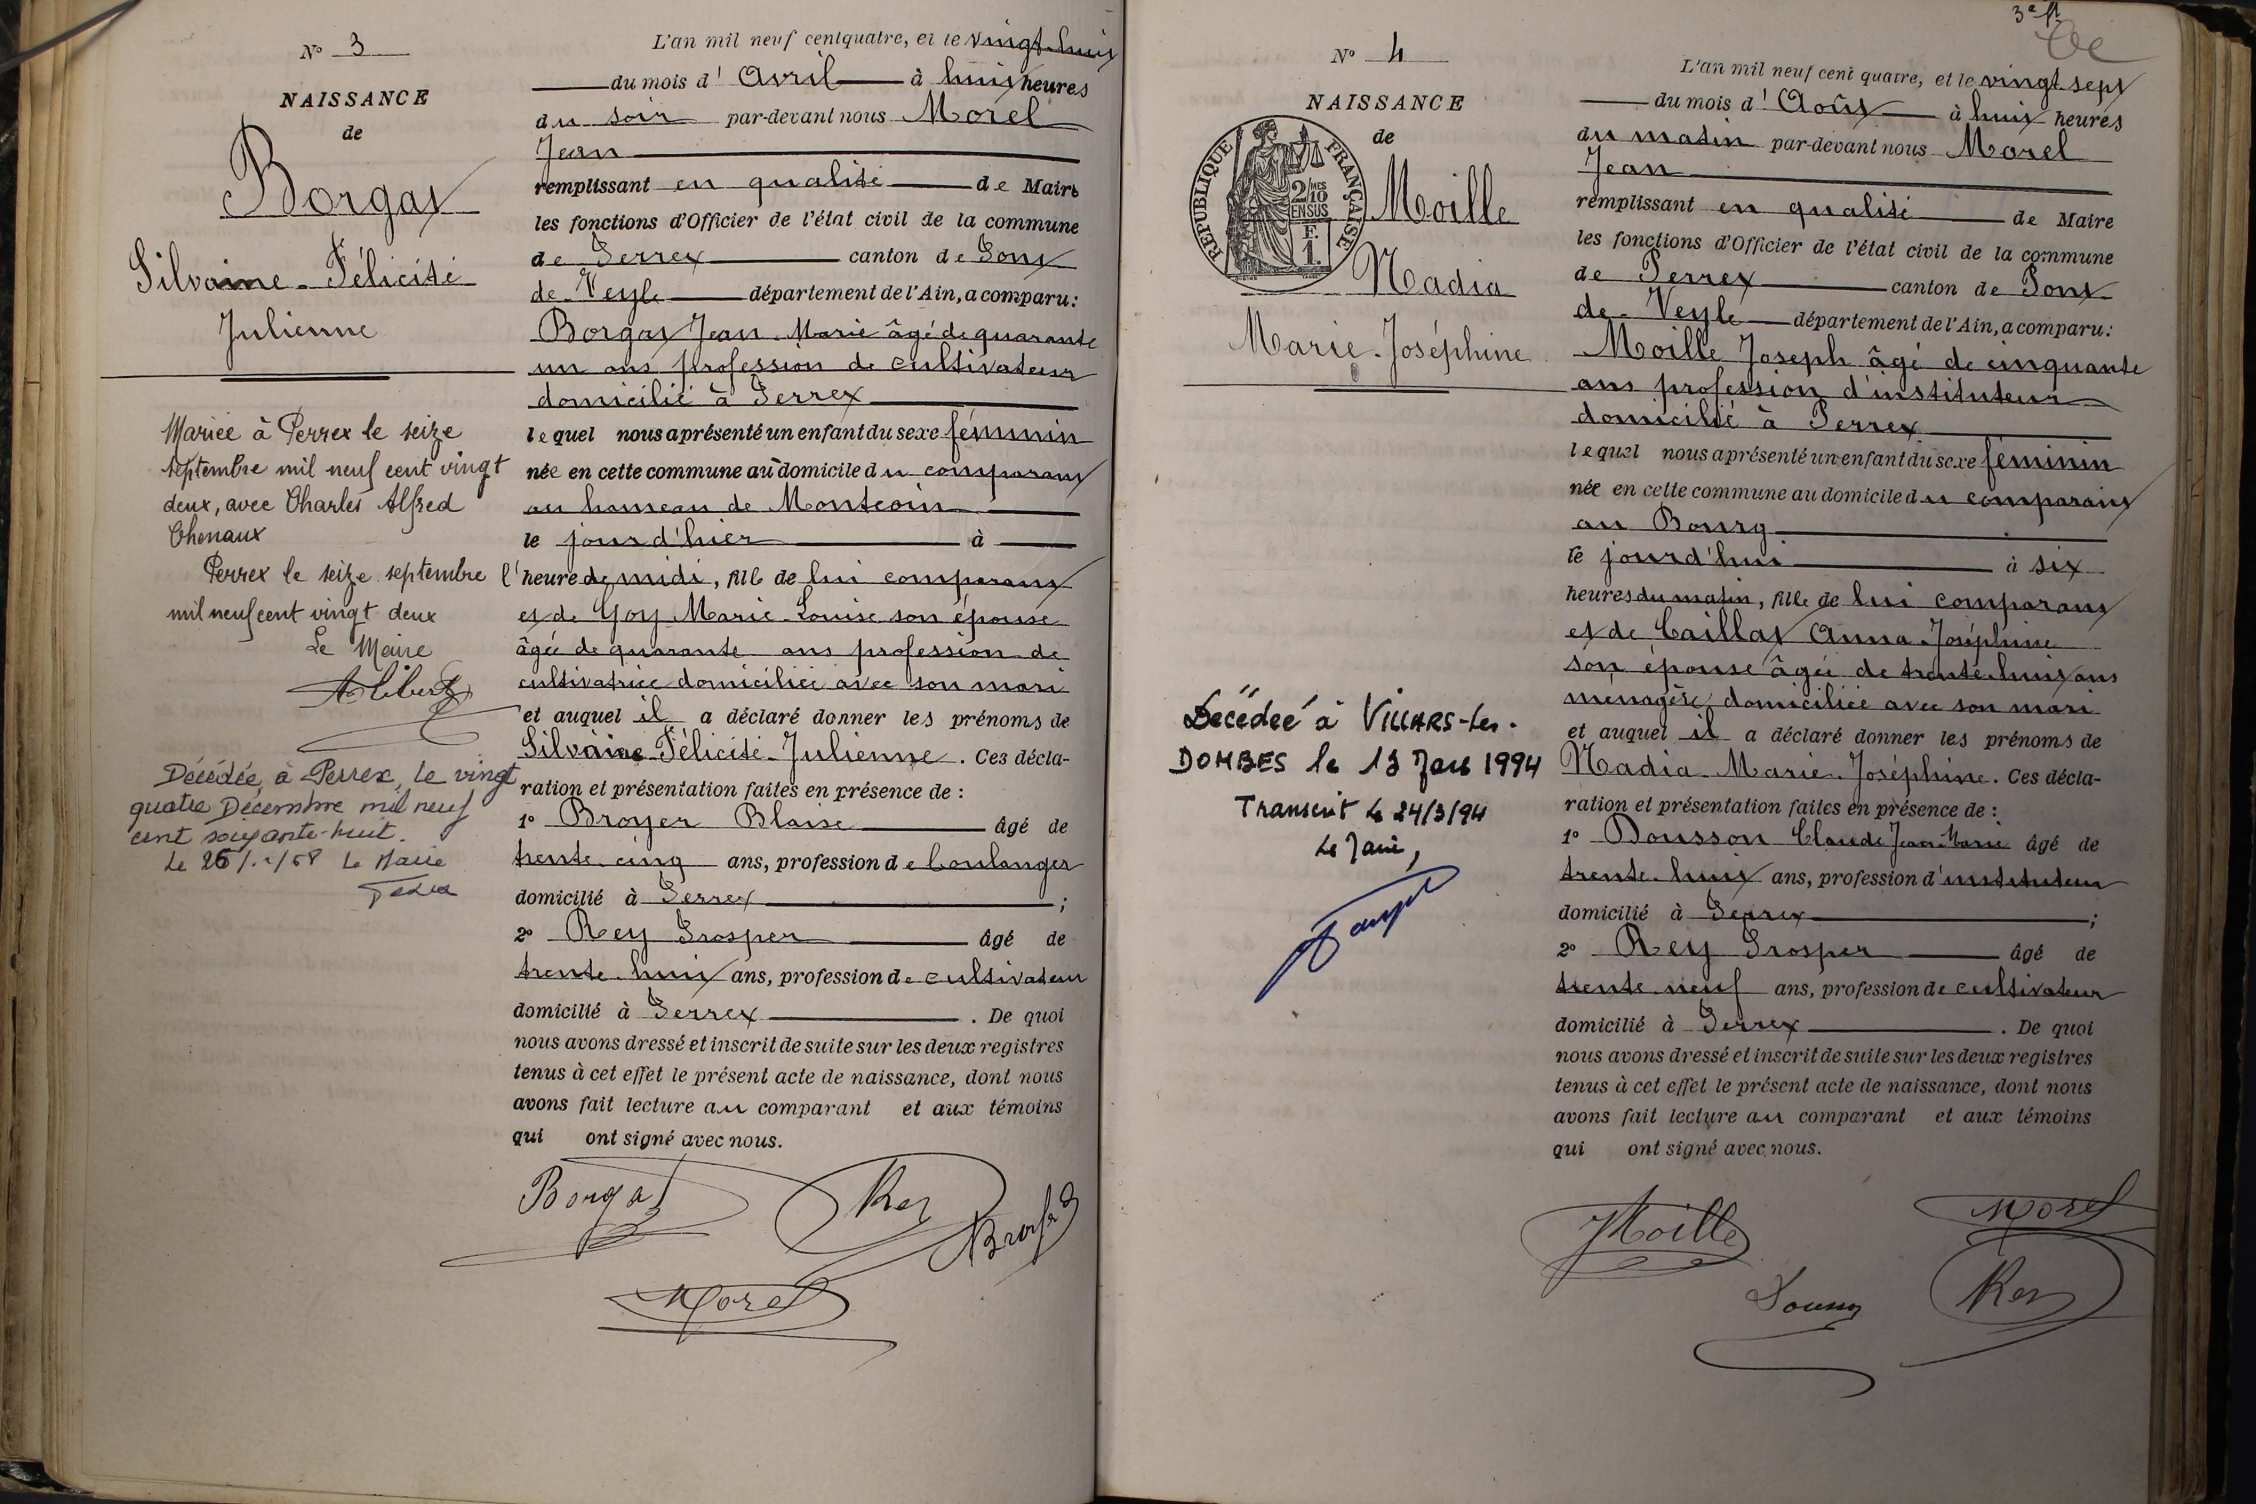 N° 3
NAISSANCE
de
Borgat
Silvaine - Félicité
Julienne
Mariée à Perrex le seize
septembre mil neuf cent vingt
deux, avec Charles Alfred
Chenaux
Perrex le seize septembre
mil neuf cent vingt deux
Le Maire
Décédée, à Perrex, le vingt
quatre Décembre mil neuf
cent soixante-huit.
Le Maire
L'an mil neuf cent quatre, et le vingt-huit
du mois d'Avril à huit heures
du soir par-devant nous Morel
Jean
remplissant en qualité de Maire
les fonctions d'Officier de l'état civil de la commune
de Perrex canton de Pont
de Veyle département de l'Ain, a comparu:
Borgat Jean-Marie âgé de quarante
un ans profession de cultivateur
domicilié à Perrex
lequel nous a présenté un enfant du sexe féminin
née en cette commune au domicile du comparant
au hameau de Montcoin
le jour d'hier à
l'heure de midi, fille de lui comparant
et de Goy Marie-Louise son épouse
âgée de quarante ans profession de
cultivatrice domiciliée avec son mari
et auquel il a déclaré donner les prénoms de
Silvaine Félicité-Julienne. Ces décla-
ration et présentation faites en présence de :
1° Broyer Blaise âgé de
trente-cinq ans, profession de boulanger
domicilié à Perrex ;
2° Rey Prosper âgé de
trente-huit ans, profession de cultivateur
domicilié à Perrex . De quoi
nous avons dressé et inscrit de suite sur les deux registres
tenus à cet effet le présent acte de naissance, dont nous
avons fait lecture au comparant et aux témoins
qui ont signé avec nous.
Borgat Rey Broyer
Morel
3e f
N° 4
NAISSANCE
de
RÉPUBLIQUE FRANÇAISE
2/MES
10
EN SUS
F.
1.
Moille
Nadia
Marie-Joséphine
Décédée à VILLARS-les-
DOMBES le 13 Mars 1994
Transcrit le 24/3/94
Le Maire,
L'an mil neuf cent quatre, et le vingt-sept
du mois d'Août à huit heures
du matin par-devant nous Morel
Jean
remplissant en qualité de Maire
les fonctions d'Officier de l'état civil de la commune
de Perrex canton de Pont
de-Veyle département de l'Ain, a comparu:
Moille Joseph âgé de cinquante
ans profession d'instituteur
domicilié à Perrex
lequel nous a présenté un enfant du sexe féminin
née en cette commune au domicile du comparant
au Bourg
le jourd'hui à six
heures du matin, fille de lui comparant
et de Caillat Anna-Joséphine
son épouse âgée de trente-huit ans
ménagère domiciliée avec son mari
et auquel il a déclaré donner les prénoms de
Nadia-Marie-Joséphine. Ces décla-
ration et présentation faites en présence de :
1° Dousson Claude Jean-Marie âgé de
trente-huit ans, profession d'instituteur
domicilié à Perrex ;
2° Rey Prosper âgé de
trente-neuf ans, profession de cultivateur
domicilié à Perrex . De quoi
nous avons dressé et inscrit de suite sur les deux registres
tenus à cet effet le présent acte de naissance, dont nous
avons fait lecture au comparant et aux témoins
qui ont signé avec nous.
JMoille Morel
Rey